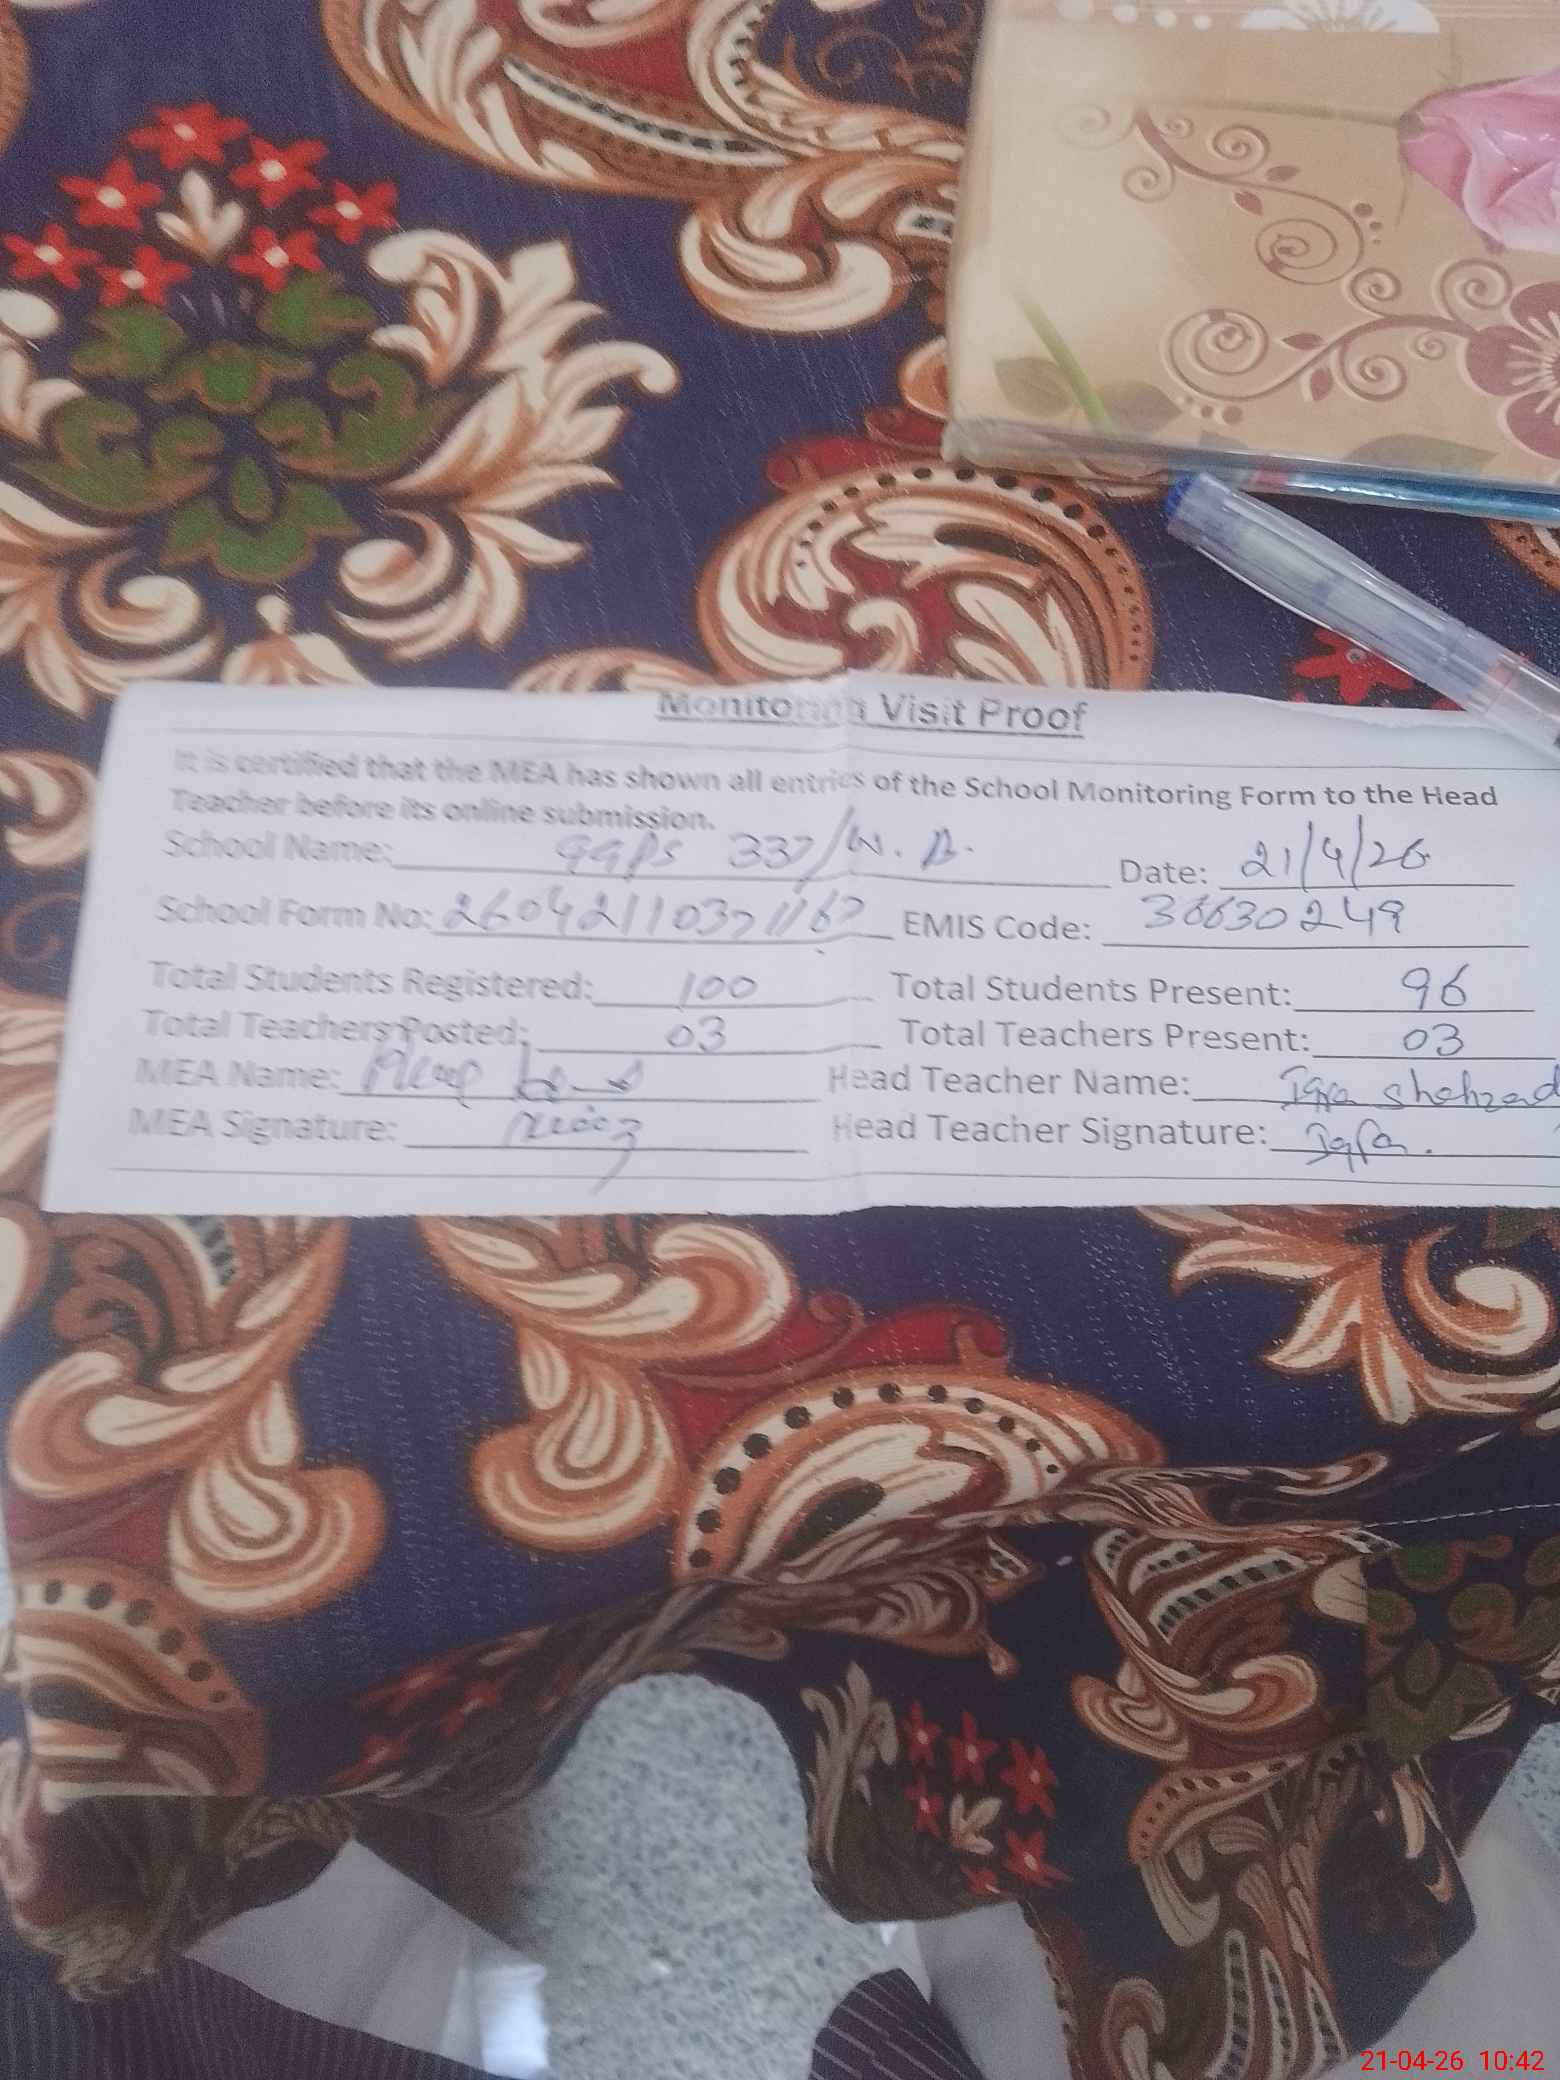 Monitoring Visit Proof
It is certified that the MEA has shown all entries of the School Monitoring Form to the Head
Teacher before its online submission.
School Name: GGPS 337/W.B. Date: 21/4/26
School Form No: EMIS Code: 36630249
Total Students Registered: 100 Total Students Present: 96
Total Teachers Posted: 03 Total Teachers Present: 03
MEA Name: Head Teacher Name: Iqra Shehzad
MEA Signature: Head Teacher Signature: Iqra.
21-04-26 10:42